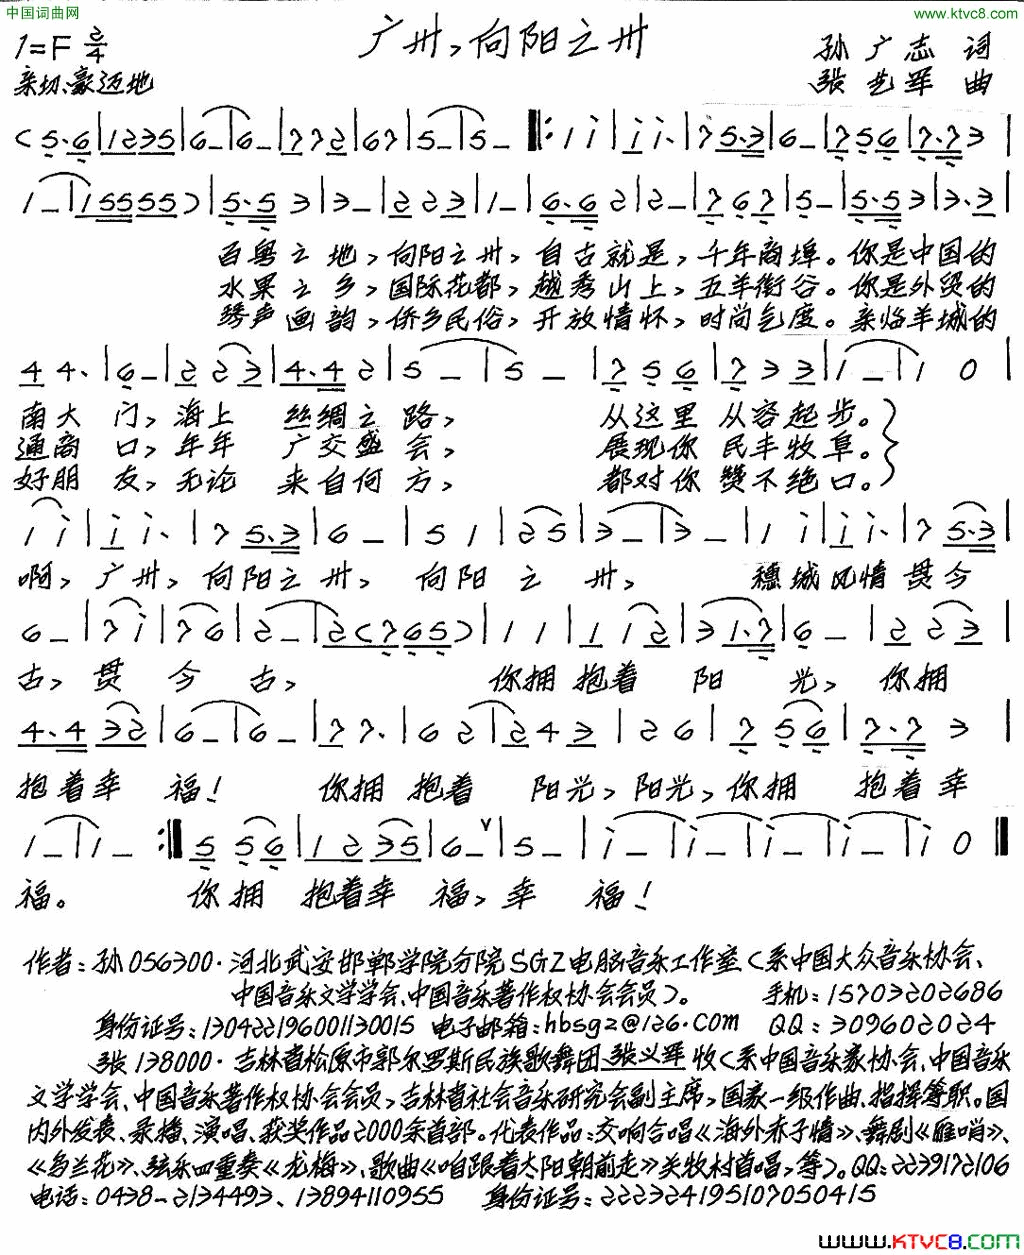 中国词曲网
www.ktvc8.com
1=F 2/4
广州,向阳之州
孙广志 词
亲切、豪迈地
张艺军 曲
(5·6|1235|6–|6–|772|67|5–|5–‖:1i|ii·|75·3|6–|756|7·73|
1–|155555)|5·53|3–|223|1–|6·62|2–|767|5–|5·53|3·3|
百粤之地,向阳之州,自古就是,千年商埠。你是中国的
水果之乡,国际花都,越秀山上,五羊衔谷。你是外贸的
琴声画韵,侨乡民俗,开放情怀,时尚气度。亲临羊城的
44·|6–|223|4·42|5–|5–|756|733|1–|10|
南大门,海上丝绸之路,从这里从容起步。
通商口,年年广交盛会,展现你民丰牧阜。
好朋友,无论来自何方,都对你赞不绝口。
1i|ii·|75·3|6–|51|25|3–|3–|1i|ii·|75·3|
啊,广州,向阳之州,向阳之州,穗城风情贯今
6–|7i|76|2–|2(765)|11|112|31·7|6–|223|
古,贯今古,你拥抱着阳光,你拥
4·432|6–|6–|77·|62|243|26|756|7·73|
抱着幸福!你拥抱着阳光,阳光,你拥抱着幸
1–|1–:‖556|1235|6–∨|5–|i–|i–|i–|i–|i0‖
福。你拥抱着幸福,幸福!
作者:孙056300·河北武安邯郸学院分院SGZ电脑音乐工作室(系中国大众音乐协会、
中国音乐文学学会、中国音乐著作权协会会员)。 手机:15703202686
身份证号:130422196001130015 电子邮箱:hbsgz@126.com QQ:309602024
张138000·吉林省松原市郭尔罗斯民族歌舞团张义军收(系中国音乐家协会、中国音乐
文学学会、中国音乐著作权协会会员,吉林省社会音乐研究会副主席,国家一级作曲、指挥等职。国
内外发表、录播、演唱、获奖作品2000余首部。代表作品:交响合唱《海外赤子情》、舞剧《雁哨》、
《乌兰花》、弦乐四重奏《龙梅》、歌曲《咱跟着太阳朝前走》关牧村首唱,等)。QQ:2239172106
电话:0438-2134493、13894110955 身份证号:222324195107050415
www.KTVC8.com